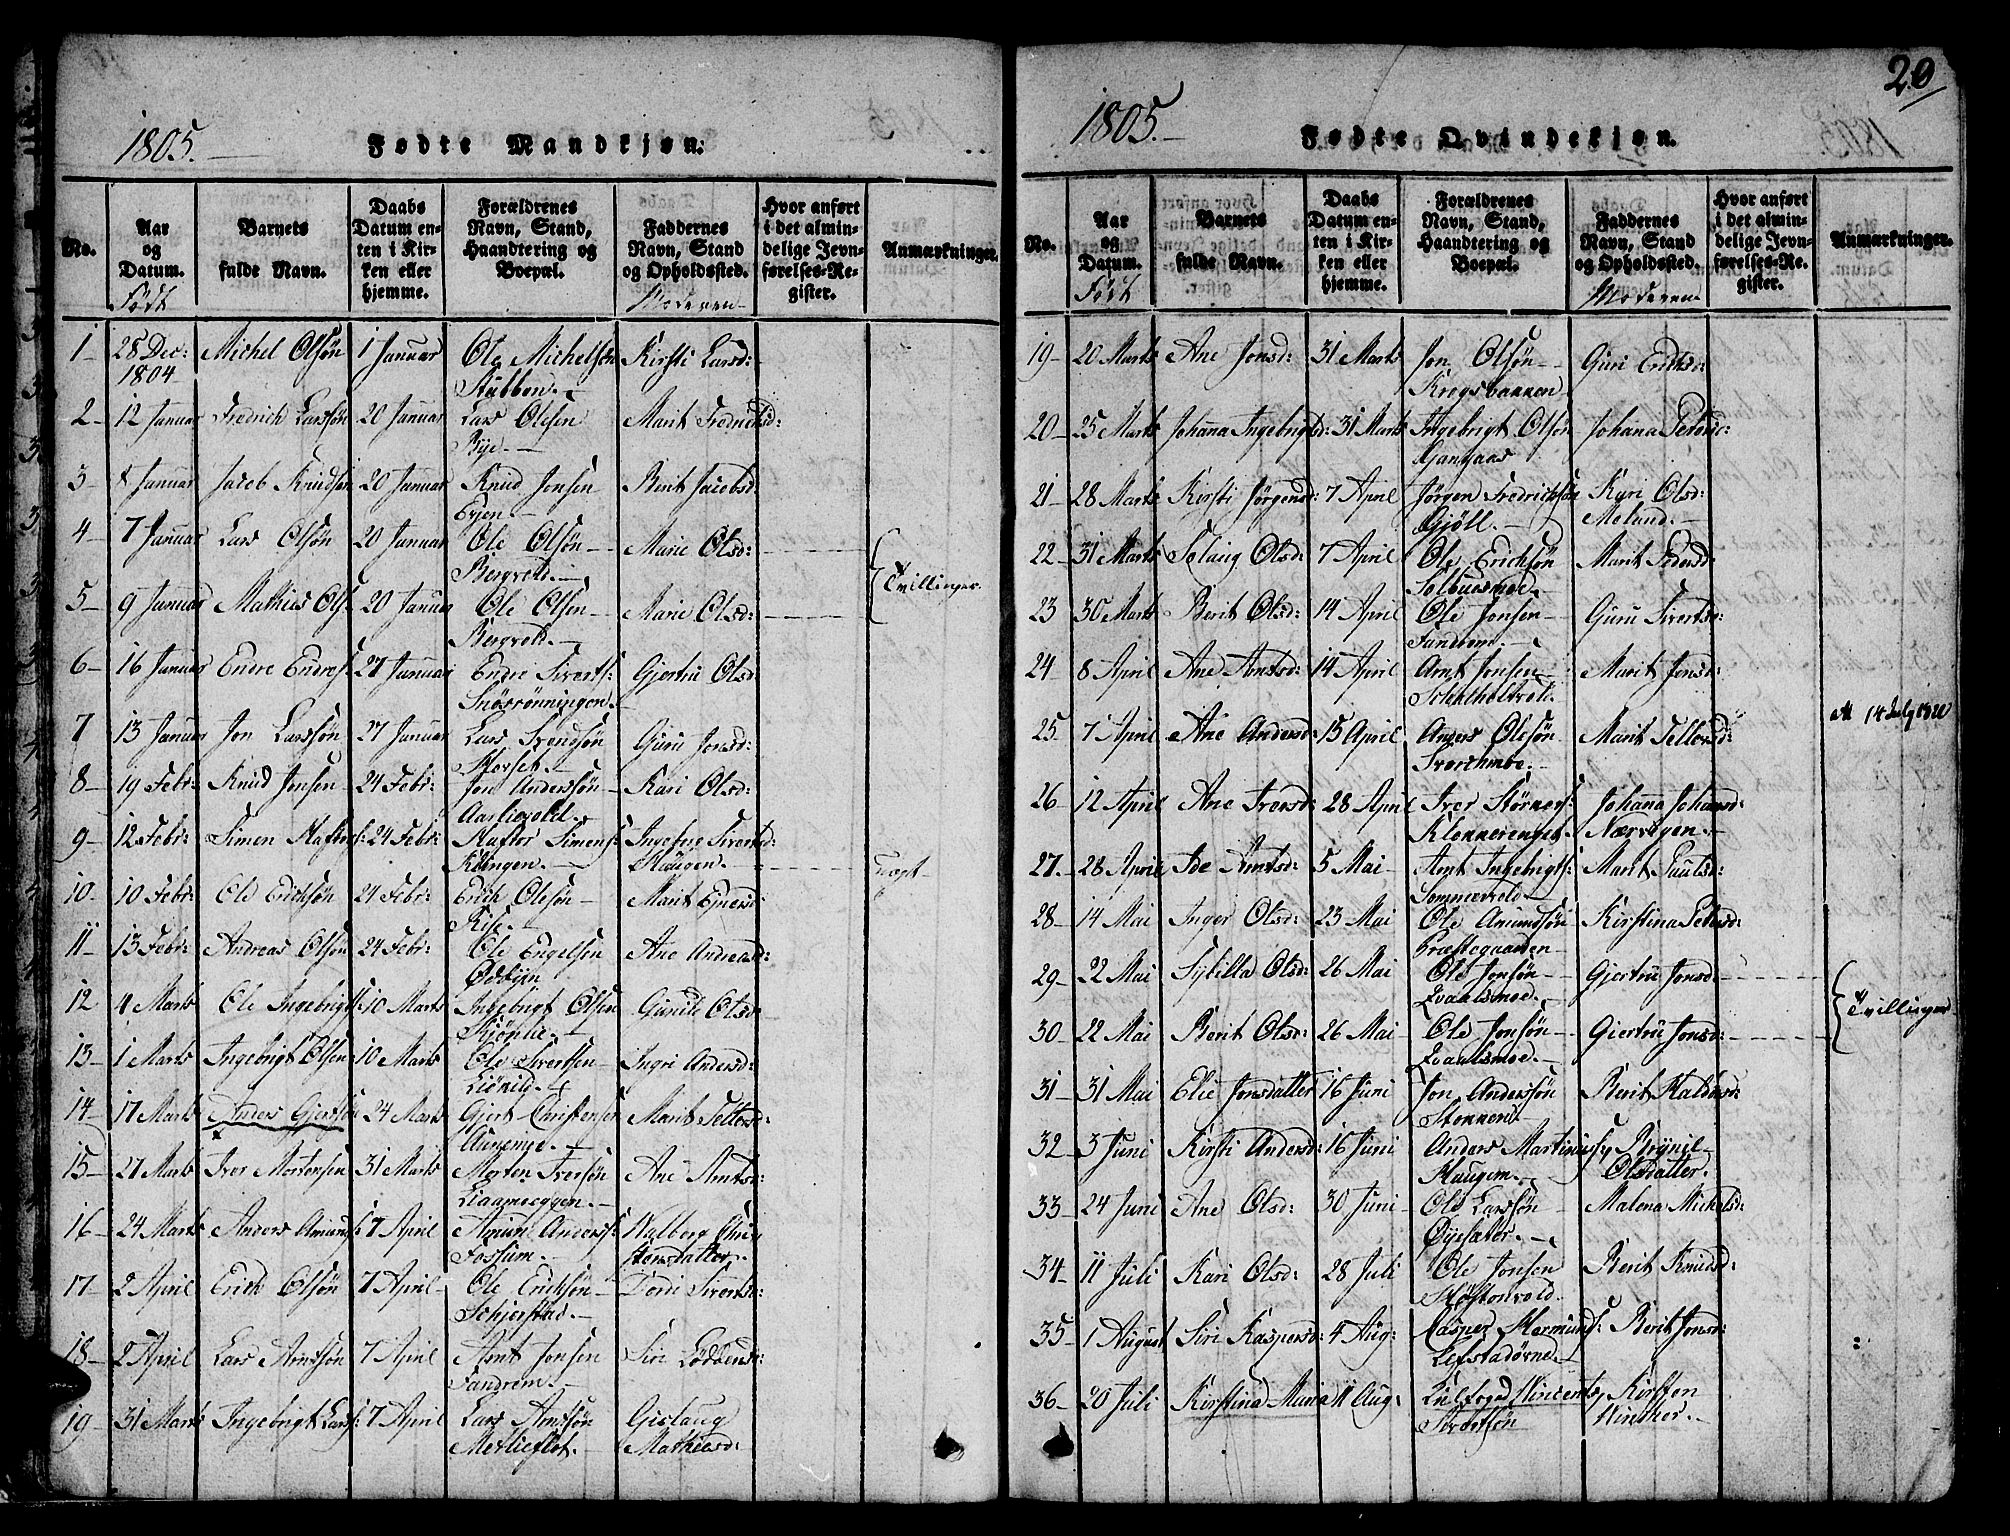 1805.
Fødte Mandkjøn.
No.
Aar og Datum.
Født
Barnets fulde Navn.
Daabs Datum enten i Kirken eller hjemme.
Forældrenes Navn, Stand, Haandtering og Boepæl.
Faddernes Navn, Stand og Opholdssted.
Moderen
Hvor anført i det almindelige Jevnførelses-Register.
Anmærkninger.
1 28 Dec: 1804 Michel Olsøn 1 Januar Ole Michelsøn Stubben Kirsti Larsd:
2 12 Januar Fredrich Larssøn 20 Januar Lars Olesen Bye Marit Fredrichsd:
3 Januar Jacob Knudsen 20 Januar Knud Jonsen Evjen Berit Jacobsd:
4 7 Januar Lars Olsøn 20 Januar Ole Olsøn Bergvold Marie Olsd:
Tvillinger
5 9 Januar Mathies Ols: 20 Januar Ole Olsen Bergvold Marie Olsd:
6 16 Januar Endre Endres: 27 Januar Endre Siverts: Snösrönningen Gjertru Olsd
7 13 Januar Jon Larssøn 27 Januar Lars Svendsøn Storset Guru Jonsd:
8 19 Febr: Knud Jonsen 24 Febr: Jon Anderssøn Aarlivold Kari Olsd:
9 12 Febr: Simen Haftors: 24 Febr: Haftor Simens: Klingen Ingebor Sivertsd Haugen
10 10 Febr: Ole Erichsøn 24 Febr: Erich Olesøn Rise Marit Ejnersd:
11 13 Febr: Andreas Olsøn 24 Febr: Ole Engelsen Ødbyen Ane Andreasd:
12 4 Marts Ole Ingebrigts: 10 Marts Ingebrigt Olsen Gunild Olsd:
13 1 Marts Ingebrigt Olsen 10 Marts Ole Sivertsen Ingri Andersd:
14 17 Marts Anders Gjertsøn 24 Marts Gjert Christensen Aunenge Marit Tellevsd:
15 27 Marts Iver Mortensen 31 Marts Morten Iversøn Liaaneeggen Ane Arntsd:
16 24 Marts Anders Amunds: 7 April Amun Anders: Fossum Walborg Christensdatter
17 2 April Erich Olsøn 7 April Ole Erichsøn Schjerstad Dordi Sivertsd:
18 2 April Lars Arntsøn 7 April Arnt Jonsen Fandrem Siri Loddensd:
19 31 Marts Ingebrigt Lars: 7 April Lars Arntsøn Metlieflot Gislaug Mathiesd:
20
1805.
Fødte Qvindekjøn.
No.
Aar og Datum.
Født
Barnets fulde Navn.
Daabs Datum enten i Kirken eller hjemme.
Forældrenes Navn, Stand, Haandtering og Boepæl.
Faddernes Navn, Stand og Opholdssted.
Moderen
Hvor anført i det almindelige Jevnførelses-Register.
Anmærkninger.
19 20 Marts Ane Jonsd: 31 Marts Jon Olsøn Krogsbakken Guri Erichsd:
20 25 Marts Johana Ingebrigtsd: 31 Marts Ingebrigt Olsøn Gangaas Johana Pedersd:
21 28 Marts Kirsti Jørgensd: 7 April Jørgen Fredrichsøn Gjöll Kari Olsd: Meland
22 31 Marts Solaug Olsd: 7 April Ole Erichsøn Solbuesmoe Marit Pedersd:
23 30 Marts Berit Olsd: 14 April Ole Jonsen Fandrem Guru Sivertsd:
24 8 April Ane Arntsd: 14 April Arnt Jonsen Marit Jonsd:
25 7 April Ane Andersd: 15 April Anders Olesøn Svorchmoe Marit Tellevsd: att 14 July 1820
26 12 April Ane Iversd: 28 April Iver Størkers: Klokkerenget Johana Johansd: Nærvigen
27 28 April Ide Arntsd: 5 Mai Arnt Ingebrigts: Sommervold Marit Paulsd:
28 14 Mai Inger Olsd: 23 Mai Ole Amundsøn Præstegaarden Kirstina Pedersd:
29 22 Mai Sybilla Olsd: 26 Mai Ole Jonsøn Qvaalsmoe Gjertru Jonsd
Tvillinger
30 22 Mai Berit Olsd: 26 Mai Ole Jonsøn Qvaalsmoe Gjertru Jonsd:
31 31 Mai Elie Jonsdatter 16 Juni Jon Andersøn Berit Haldorsd:
32 3 Juni Kirsti Andersd: 16 Juni Anders Martinus: Haugen Brynil Olsdatter
33 24 Juni Ane Olsd: 30 Juni Ole Larssøn Øyesæter Malena Michelsd:
34 11 Juli Kari Olsd: 28 Juli Ole Jonsen Berit Knudsd:
35 1 August Siri Kaspersd: 4 Aug: Casper Mermunds: Lefstadørne Berit Jonsd:
36 20 Juli Kirstina Maria 11 Aug: Vincents Sivertsøn Kirsten Hinsker